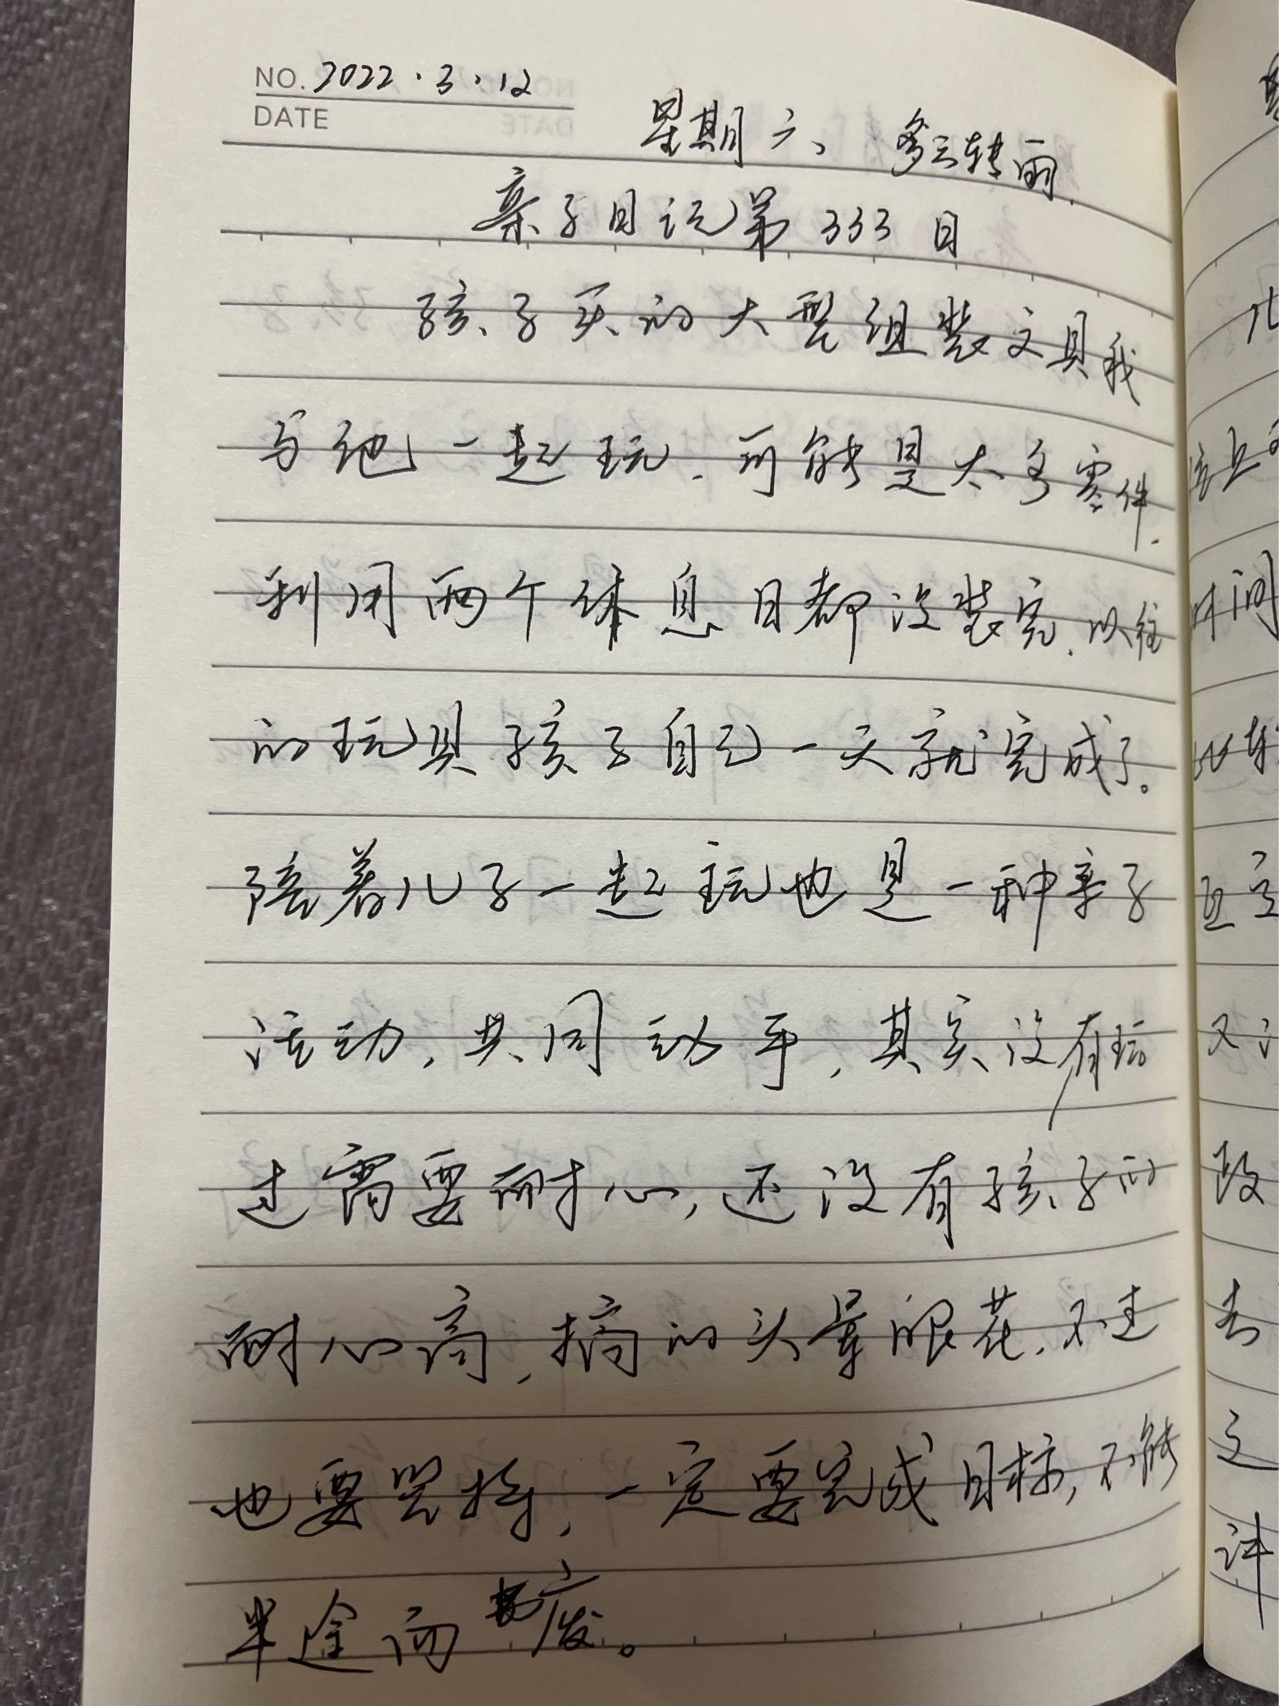 NO. 2022.3.12
DATE
星期六、多云转雨
亲子日记第333日
孩子买的大型组装文具我
与他一起玩.可能是太多零件.
利用两个休息日都没装完.以往
的玩具孩子自己一天就完成了。
陪着儿子一起玩也是一种亲子
活动,共同动手,其实没有玩
过需要耐心,还没有孩子的
耐心高,搞的头晕眼花.不过
也要坚持,一定要完成目标,不能
半途而废。
时间